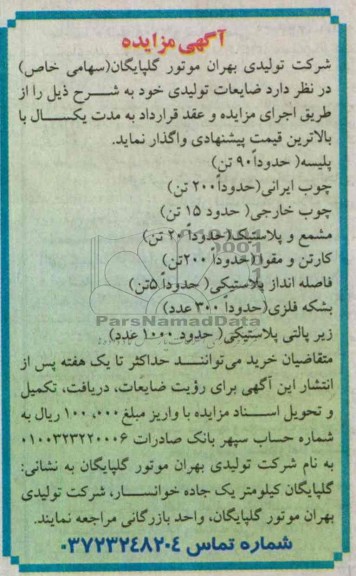 آگهی مزایده
شرکت تولیدی بهران موتور گلپایگان(سهامی خاص)
در نظر دارد ضایعات تولیدی خود به شرح ذیل را از
طریق اجرای مزایده و عقد قرارداد به مدت یکسال با
بالاترین قیمت پیشنهادی واگذار نماید.
پلیسه( حدوداً ۹۰ تن)
چوب ایرانی(حدوداً ۲۰۰ تن)
چوب خارجی( حدود ۱۵ تن)
مشمع و پلاستیک(حدوداً ۲۰ تن)
کارتن و مقوا(حدوداً ۲۰۰تن)
فاصله انداز پلاستیکی( حدوداً ۵تن)
بشکه فلزی(حدوداً ۳۰۰ عدد)
ParsNamadData
زیر پالتی پلاستیکی( حدود ۱۰۰۰ عدد)
متقاضیان خرید می‌توانند حداکثر تا یک هفته پس از
انتشار این آگهی برای رؤیت ضایعات، دریافت، تکمیل
و تحویل اسناد مزایده با واریز مبلغ ۱۰۰,۰۰۰ ریال به
شماره حساب سپهر بانک صادرات ۰۱۰۰۳۲۳۲۲۰۰۰۶
به نام شرکت تولیدی بهران موتور گلپایگان به نشانی:
گلپایگان کیلومتر یک جاده خوانسار، شرکت تولیدی
بهران موتور گلپایگان، واحد بازرگانی مراجعه نمایند.
شماره تماس ۰۳۷۲۳۲۴۸۲۰۴